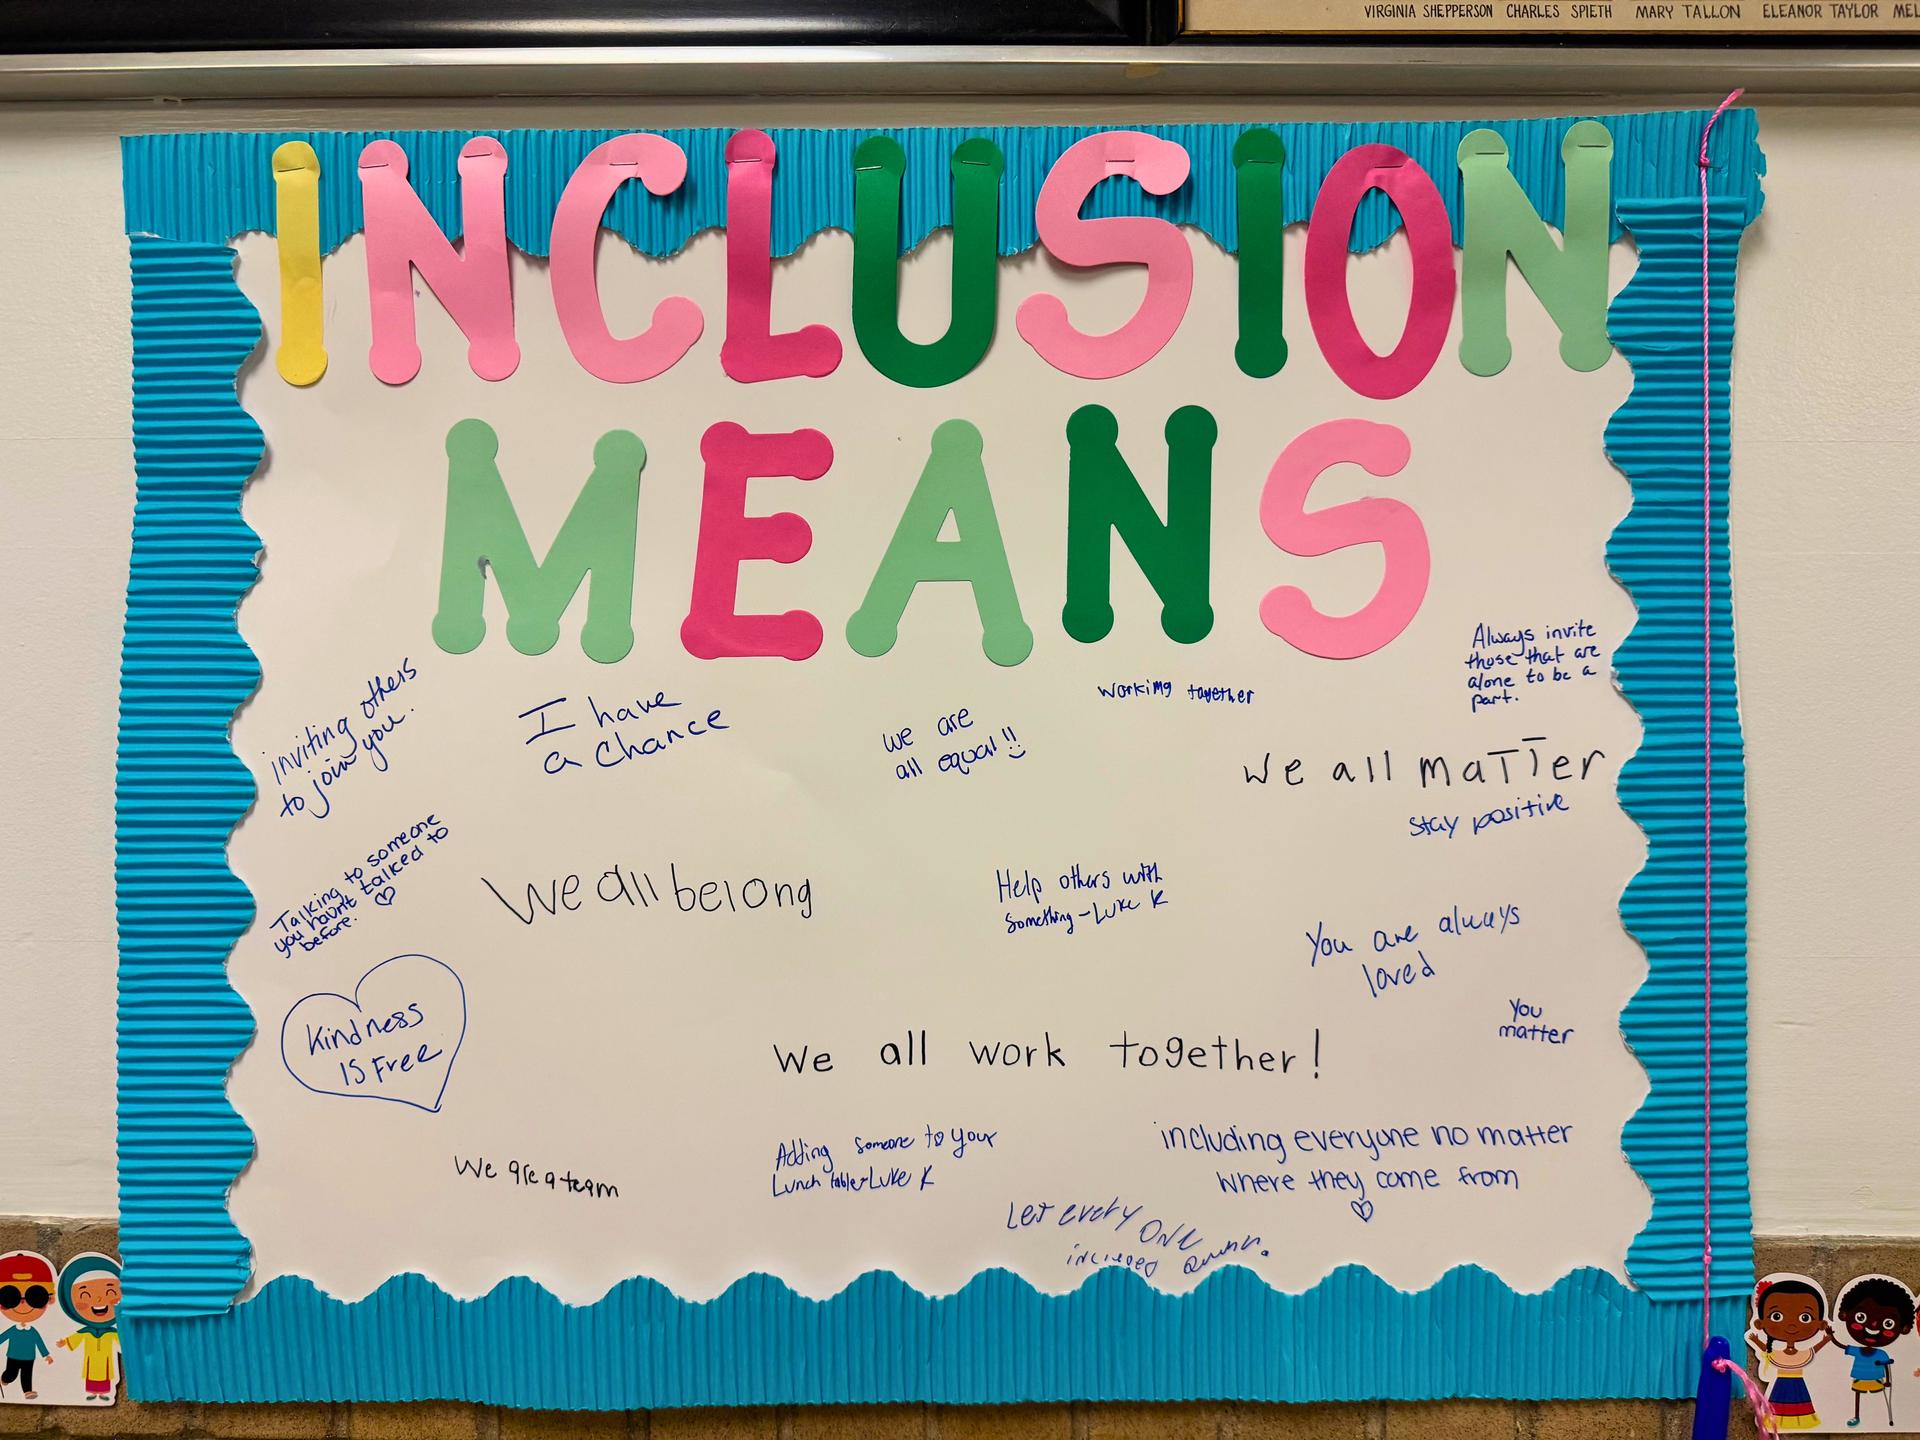 VIRGINIA SHEPPERSON CHARLES SPIETH MARY TALLON ELEANOR TAYLOR
INCLUSION
MEANS
inviting others
to join you.
I have
a chance
we are
all equal!!
Working together
Always invite
those that are
alone to be a
part.
We all maTTer
stay positive
Talking to someone
you havn't talked to
before.
We all belong
Help others with
something-Luke K
You are always
loved
You
matter
Kindness
IS Free
We all work together!
We are a team
Adding someone to your
Lunch table-Luke K
including everyone no matter
where they come from
Let every
ONE